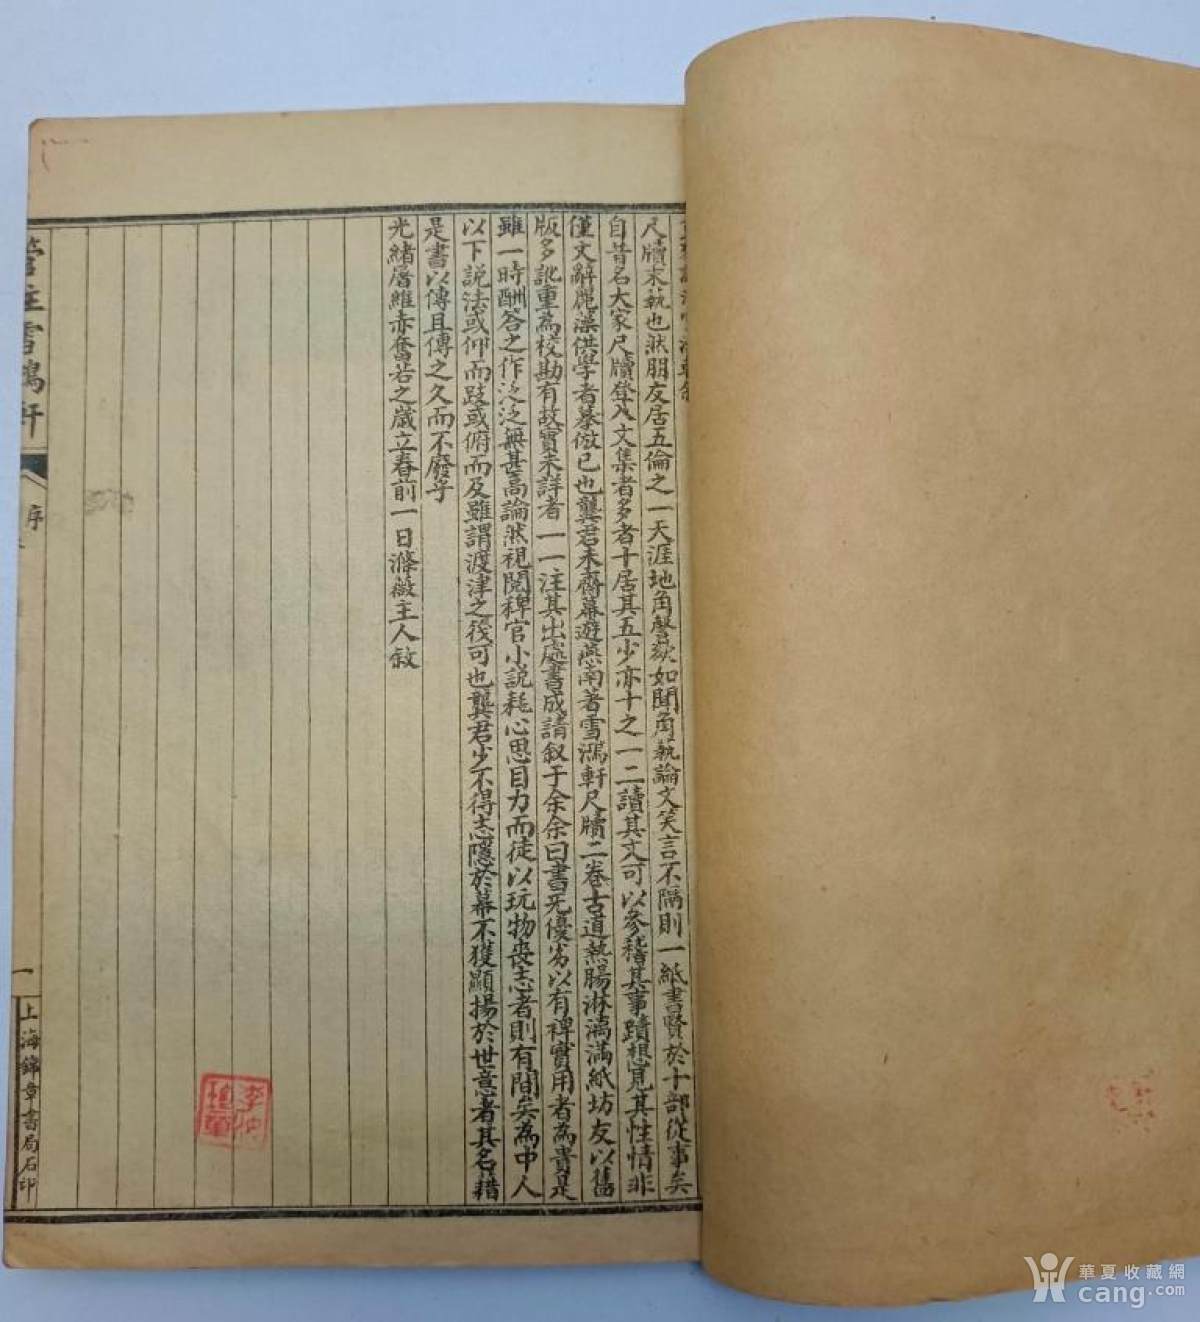 尺牘末蓺也然朋友居五倫之一天涯地角謦欬如聞角蓺論文笑言不隔則一紙書賢於十部從事矣
自昔名大家尺牘登入文集者多者十居其五少亦十之一二讀其文可以參稽其事蹟想見其性情非
僅文辭麗藻供學者摹倣已也龔君未齋幕遊燕南著雪鴻軒尺牘二卷古道熱腸淋漓滿紙坊友以舊
版多訛重為校勘有故實未詳者一一注其出處書成請叙于余余曰書无優劣以有裨實用者為貴是
雖一時酬答之作泛泛無甚高論然視閱稗官小説耗心思目力而徒以玩物喪志者則有間矣為中人
以下説法或仰而跂或俯而及雖謂渡津之筏可也龔君少不得志隱於幕不獲顯揚於世意者其名藉
是書以傳且傳之久而不廢乎
光緒屠維赤奮若之歲立春前一日滌薇主人敘
雪鴻軒
序
一
上海錦章書局石印
華夏收藏網
cang.com